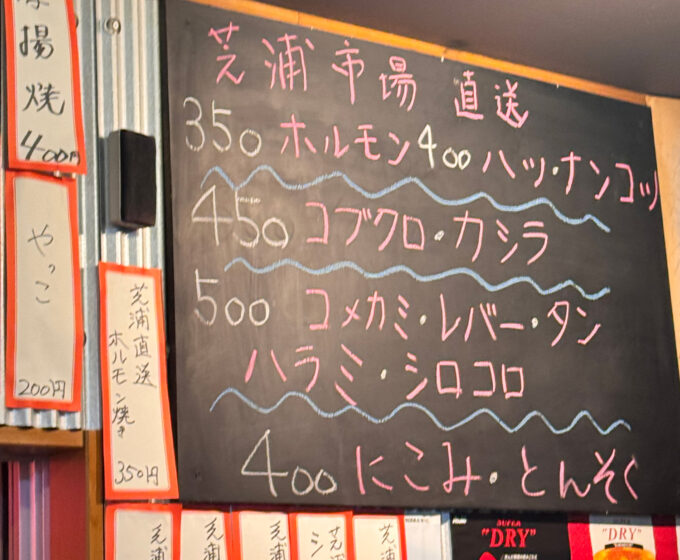 芝浦市場 直送
350 ホルモン 400 ハツ・ナンコツ
450 コブクロ・カシラ
500 コメカミ・レバー・タン
ハラミ・シロコロ
400 にこみ・とんそく
揚焼
400円
やっこ
200円
芝浦直送
ホルモン焼き
350円
芝浦
芝浦
芝浦
芝浦
SUPER
"DRY"
"DRY"